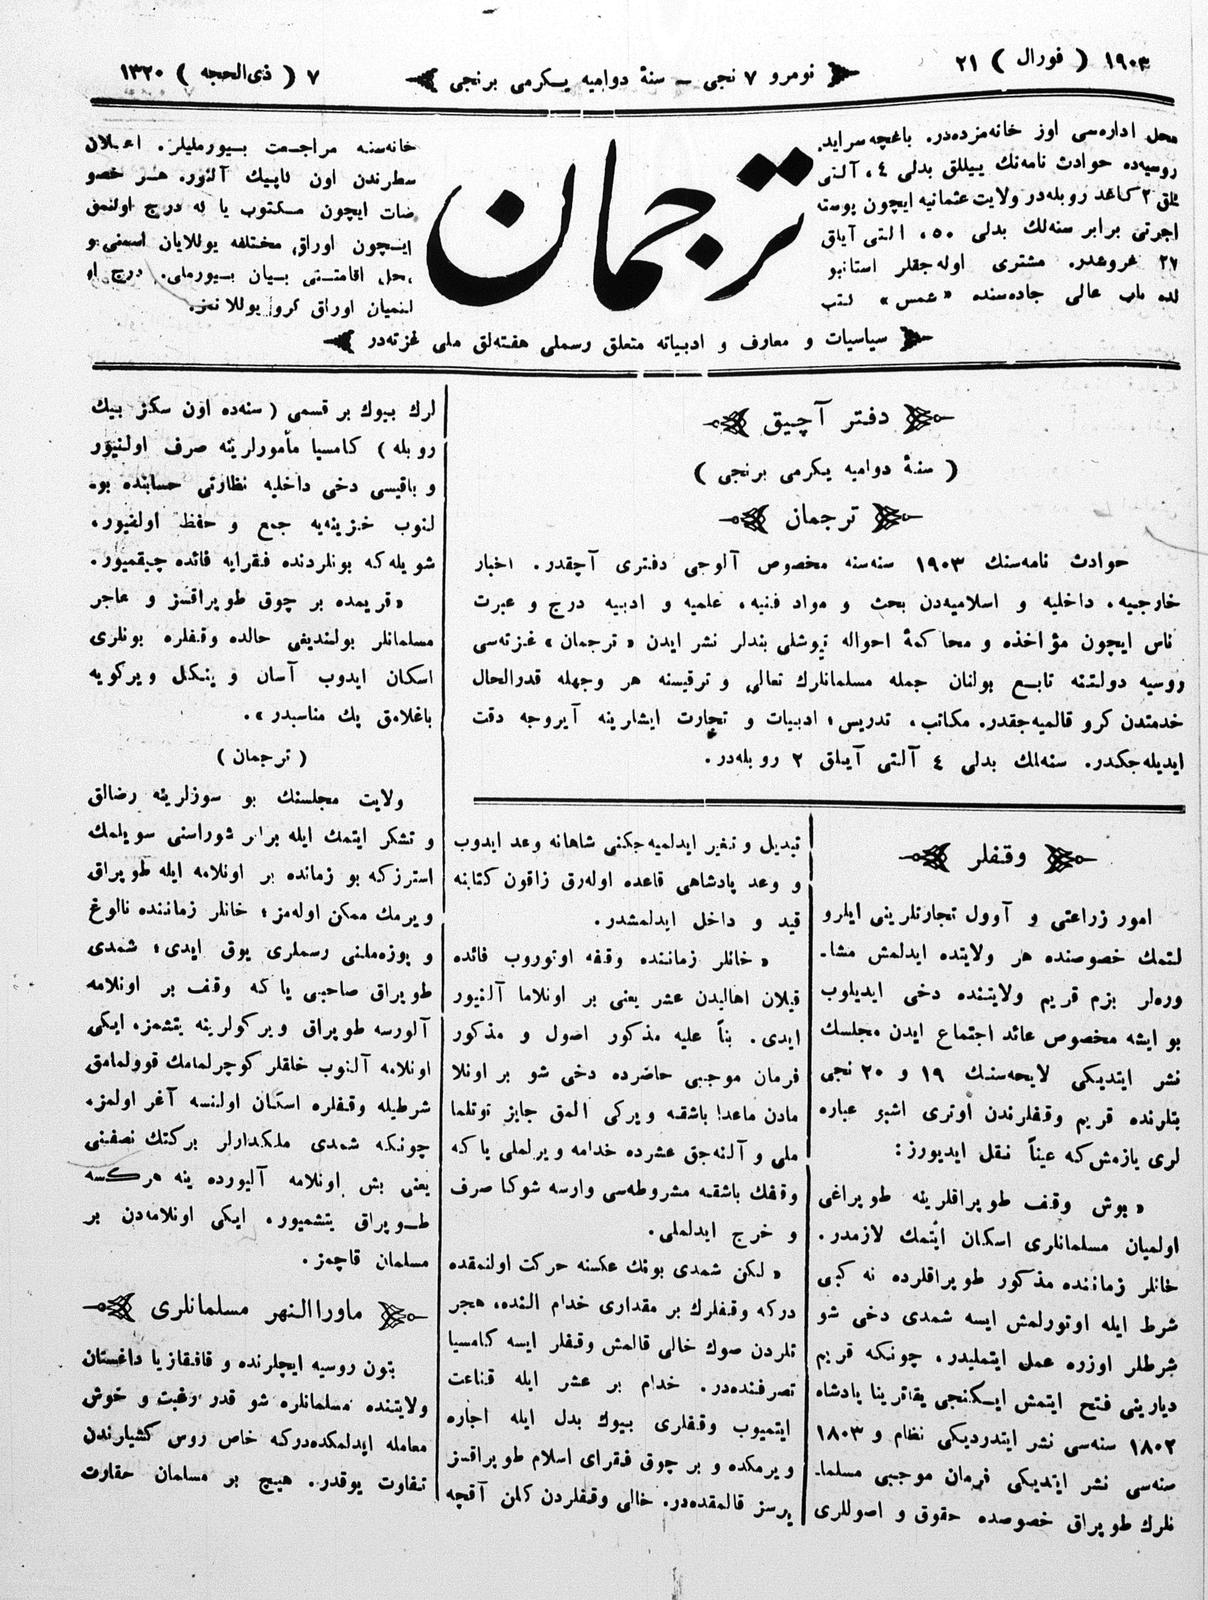 ١٩٠٣ ( فورال ) ٢١
نومرو ٧ نجی – سنهٔ دوامیه یـکرمی برنجی
٧ ( ذی‌الحجه ) ١٣٢٠
محل اداره‌سی اوز خانه‌مزده‌در. باغچه سرایده
روسیه‌ده حوادث نامه‌نك ییللق بدلی ٤، آلتی
یلق ٢ کاغد روبله‌در ولایت عثمانیه ایچون پوسته
اجرتی برابر سنه‌لك بدلی ٥٠، التی آیلق
٢٧ غروشدر. مشتری اوله‌جقلر استانبو
لده باب عالی جاده‌سنده «شمس» کتب
خانه‌سنه مراجـعت بـیورملیلر. اعـلان
سطرندن اون کاپیك آلنور. هـر خصو
صات ایچون مـکتوب یا که درج اولنمق
ایـچون اوراق مختلفه یوللایان اسمنی و
محل اقامتـنی بـیان بـیورملی. درج او
لنمیان اوراق کرو یوللانمز.
ترجمان
سیاسیات و معارف و ادبیاته متعلق رسملی هفته‌لق ملی غزته‌در
دفـتر آچیق
( سنهٔ دوامیه یـکرمی برنجی )
ترجمان
حوادث نامه‌سنك ١٩٠٣ سنه‌سنه مخصوص آلوجی دفتری آچقدر. اخبار
خارجیه، داخلیه و اسلامیه‌دن بحث و مواد فنیه، علمیه و ادبیه درج و عبرت
ناس ایچون مؤاخذه و محاکمهٔ احواله تیوشلی بندلر نشر ایدن «ترجمان» غزته‌سی
روسیه دولتنه تابـع بولنان جمله مسلمانلرك تعالی و ترقیسنه هر وجهله قدرالحال
خدمتدن کرو قالمیه‌جقدر. مکاتب، تدریس، ادبیات و تجارت ایشلرینه آیروجه دقت
ایدیله‌جکدر. سنه‌لك بدلی ٤ آلتی آیـلق ٢ روبله‌در.
وقـفلر
امور زراعتی و آوول تجارتلرینی ایلرو
لتمك خصوصنده هر ولایتده ایدلمش مشا-
وره‌لر بزم قریم ولایتنده دخی ایدیلوب
بو ایشه مخصوص عائد اجتماع ایدن مجلسك
نشر ایتدیکی لایحه‌سنك ١٩ و ٢٠ نجی
بتلرنده قریم وقـفلرندن اوتری اشبو عباره
لری یازمش که عیناً نـقل ایدیورز:
«بوش وقـف طوپراقلرینه طوپراغی
اولمیان مسلمانلری اسکان ایتمك لازمدر.
خانلر زماننده مذکور طوپراقلرده نه کبی
شرط ایله اوتورلمش ایسه شمدی دخی شو
شرطلر اوزره عمل ایتملیدر، چونکه قریم
دیارینی فـتح ایتمش ایـکنجی یقاترینا پادشاه
١٨٠٢ سنه‌سی نشر ایتدردیکی نظام و ١٨٠٣
سنه‌سی نشر ایتدیکی فرمان موجبی مسلما-
نلرك طوپراق خصوصده حقوق و اصوللری
تبدیل و تغیر ایدلمیه‌جکنی شاهانه وعد ایدوب
و وعد پادشاهی قاعده اوله‌رق زاقون کتابنه
قید و داخل ایدلمشدر.
«خانلر زماننده وقـفه اوتوروب فائده
قیلان اهالیدن عشر یعنی بر اونلاما آلنیور
ایدی. بناً علیه مذکور اصول و مذکور
فرمان موجبی حاضرده دخی شو بر اونلا
مادن ماعدا باشقه ویرکی المق جایز توتلما
ملی و آلنه‌جق عشرده خدامه ویرلملی یا که
وقـفك باشقه مشروطه‌سی وارسه شوکا صرف
و خرج ایدلملی.
«لـکن شمدی بونك عکسنه حرکت اولنمقده
درکه وقـفلرك بر مقداری خدام الـنده، هجر
تلردن صوك خالی قالمش وقـفلر ایسه کامسیا
تصرفنده‌در. خدام بر عشر ایله قـناعت
ایتمیوب وقـفلری بیوك بدل ایله اجاره
ویرمکده و بر چوق فـقرای اسلام طوپراقسز
یرسز قالمقده‌در. خالی وقـفلردن کلن آقچه
لرك بیوك بر قسمی ( سنه‌ده اون سکز بیك
روبله ) کامسیا مأمورلرینه صرف اولنیور
و باقیسی دخی داخلیه نظارتی حسابنده بو-
لنوب خـزینه‌یه جـمع و حفـظ اولنیور.
شویله که بونلردنده فـقرایه فائده چیقمیور.
«قریمده بر چوق طوپراقسز و عاجز
مسلمانلر بولندیغی حالده وقـفلره بونلری
اسکان ایدوب آسان و ینکل ویرکویه
باغلامق پك مناسبدر».
( ترجمان )
ولایت مجلسنك بو سوزلرینه رضالق
و تشکر ایتمك ایله برابر شوراسنی سویلمك
استرزکه بو زمانده بر اونلامه ایله طوپراق
ویرمك ممکن اوله‌مز؛ خانلر زماننده نالوغ
و پوزه‌ملنی رسملری یوق ایدی؛ شمدی
طوپراق صاحبی یا که وقـف بر اونلامه
آلورسه طوپراق ویرکولرینه یتشمز، ایکی
اونلامه آلنوب خلقلر کوچرلمامك قوولمامق
شرطیله وقـفلره اسکان اولنسه آغر اولمز،
چونکه شمدی ملکدارلر برکتك نصفـنی
یعنی بش اونلامه آلیورده ینه هرکسه
طـوپراق یتشمیور. ایکی اونلامه‌دن بر
مسلمان قاچمز.
ماوراالنهر مسلمانلری
بتون روسیه ایچلرنده و قافـقازیا داغستان
ولایتنده مسلمانلره شو قدر رغبت و خوش
معامله ایدلمکده‌درکه خاص روس کشیلرندن
تـفاوت یوقدر. هیـچ بر مسلمان حقارت